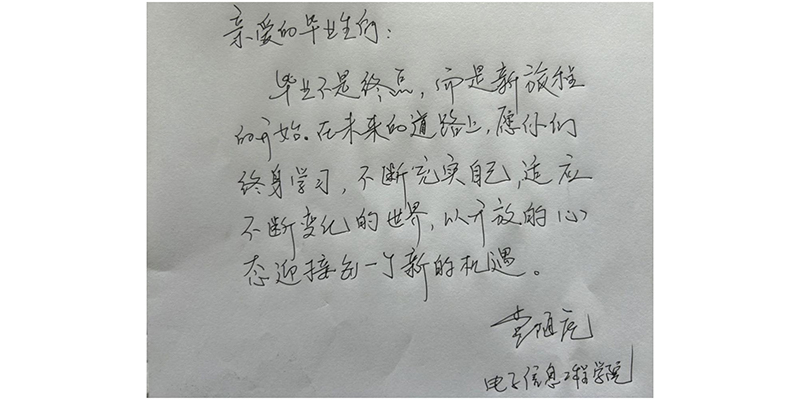 亲爱的毕业生们：
毕业不是终点，而是新旅程
的开始。在未来的道路上，愿你们
终身学习，不断充实自己，适应
不断变化的世界，以开放的心
态迎接每一个新的机遇。
电子信息工程学院